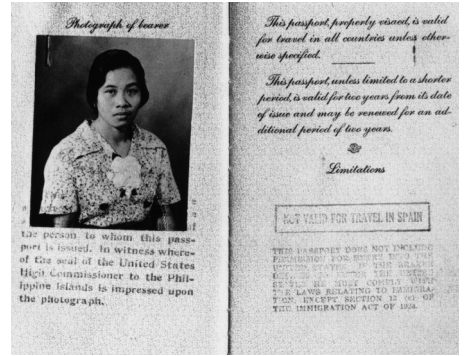 Photograph of bearer
the person to whom this pass-
port is issued. In witness where-
of the seal of the United States
High Commissioner to the Phil-
ippine Islands is impressed upon
the photograph.
This passport, properly visaed, is valid
for travel in all countries unless other-
wise specified.
This passport, unless limited to a shorter
period, is valid for two years from its date
of issue and may be renewed for an ad-
ditional period of two years.
Limitations
NOT VALID FOR TRAVEL IN SPAIN
THIS PASSPORT DOES NOT INCLUDE
PERMISSION FOR ENTRY INTO THE
STATES HE MUST COMPLY WITH
THE LAWS RELATING TO IMMIGRA-
TION, EXCEPT SECTION 13 (c) OF
THE IMMIGRATION ACT OF 1924.